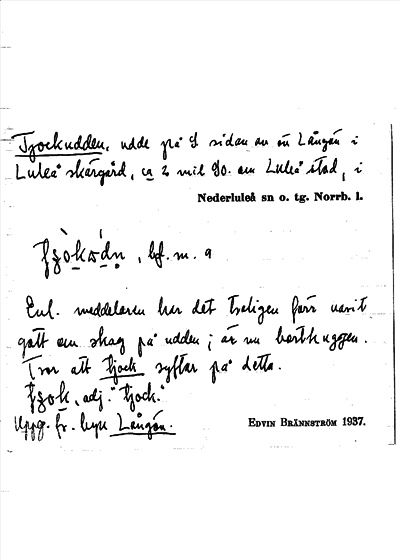 Tjockudden, udde på S sidan av ön Långön i
Luleå skärgård, ca 2 mil SO. om Luleå stad, i
Nederluleå sn o. tg. Norrb. l.
bf. m. a
Enl. meddelaren har det troligen förr varit
gott om skog på udden; är nu borthuggen.
Tror att tjock syftar på detta.
adj. "tjock."
Uppg. fr. byn Långön.
EDVIN BRÄNNSTRÖM 1937.